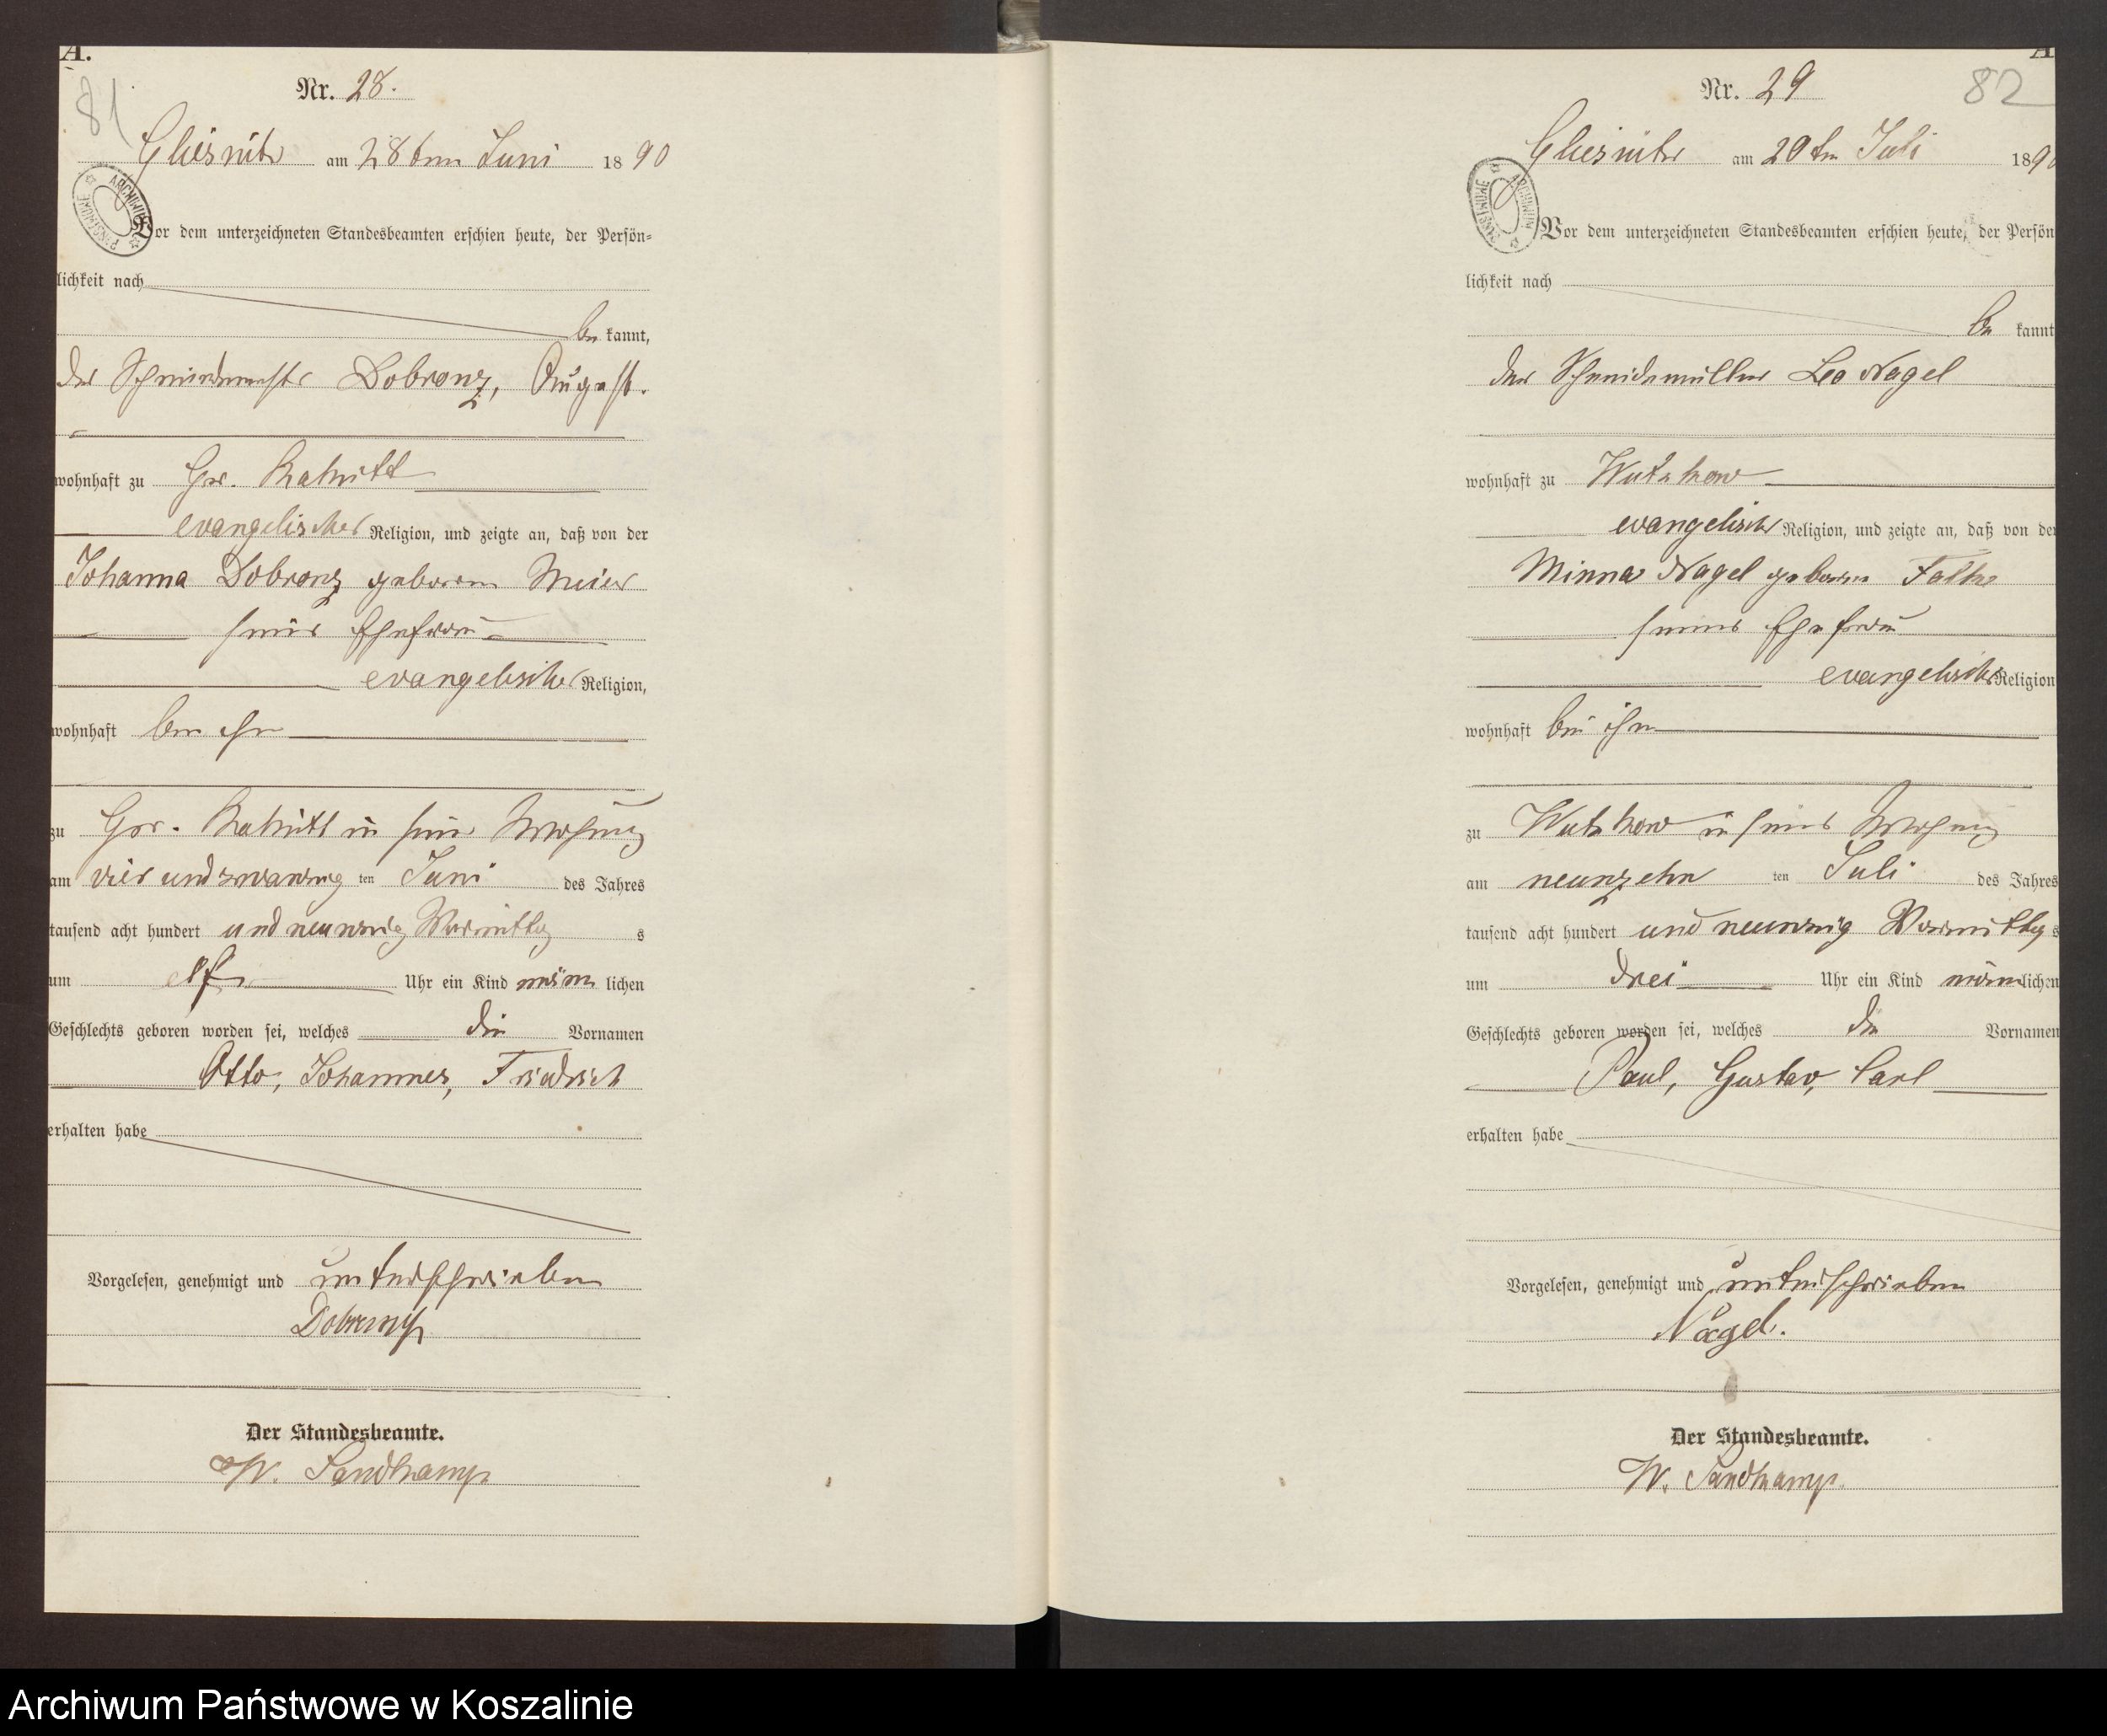 A.
81
Nr. 28.
Gliesnitz am 28ten Juni 1890
ARCHIWUM PAŃSTWOWE
Vor dem unterzeichneten Standesbeamten erschien heute, der Persön-
lichkeit nach
be kannt,
der August.
wohnhaft zu Gr. Rakitt
evangelischer Religion, und zeigte an, daß von der
Johanna geborene Meier
seiner Ehefrau
evangelischer Religion,
wohnhaft bei ihm
zu Gr. Rakitt in seiner Wohnung
am vier und zwanzig ten Juni des Jahres
tausend acht hundert und neunzig Vormittag s
um elf Uhr ein Kind männ lichen
Geschlechts geboren worden sei, welches die Vornamen
Otto, Johannes, Friedrich
erhalten habe
Vorgelesen, genehmigt und unterschrieben
Der Standesbeamte.
W. Sandkamp
A
82
Nr. 29
Gliesnitz am 20ten Juli 1890
ARCHIWUM PAŃSTWOWE
Vor dem unterzeichneten Standesbeamten erschien heute, der Persön
lichkeit nach
be kannt
der Schneidemüller Leo Nagel
wohnhaft zu Wutzkow
evangelischer Religion, und zeigte an, daß von der
Minna Nagel geborene Falke
seiner Ehefrau
evangelischer Religion
wohnhaft bei ihm
zu Wutzkow in seiner Wohnung
am neunzehn ten Juli des Jahres
tausend acht hundert und neunzig Vormittag s
um drei Uhr ein Kind männlichen
Geschlechts geboren worden sei, welches die Vornamen
Paul, Gustav, Carl
erhalten habe
Vorgelesen, genehmigt und unterschrieben
Nagel.
Der Standesbeamte.
W. Sandkamp.
Archiwum Państwowe w Koszalinie